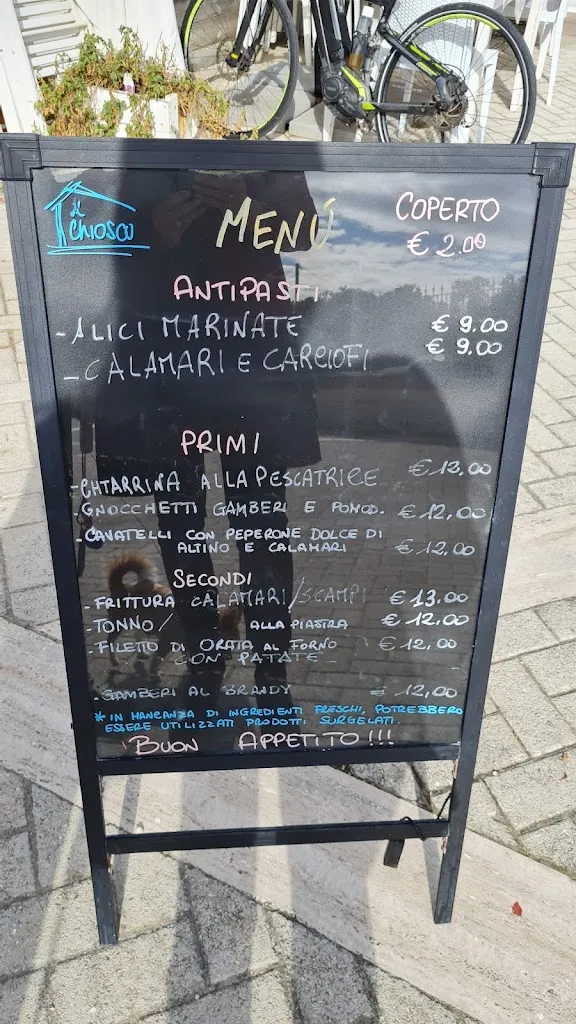 il Chiosco
MENÚ
COPERTO
€ 2.00
ANTIPASTI
- ALICI MARINATE € 9.00
- CALAMARI E CARCIOFI € 9.00
PRIMI
- CHTARRINA ALLA PESCATRICE € 12,00
- GNOCCHETTI GAMBERI E POMOD. € 12,00
- CAVATELLI CON PEPERONE DOLCE DI
ALTINO E CALAMARI € 12,00
SECONDI
- FRITTURA CALAMARI/SCAMPI € 13.00
- TONNO/ ALLA PIASTRA € 12.00
- FILETTO DI ORATA AL FORNO € 12,00
CON PATATE -
- GAMBERI AL BRANDY € 12,00
* IN MANCANZA DI INGREDIENTI FRESCHI, POTREBBERO
ESSERE UTILIZZATI PRODOTTI SURGELATI.
BUON APPETITO!!!